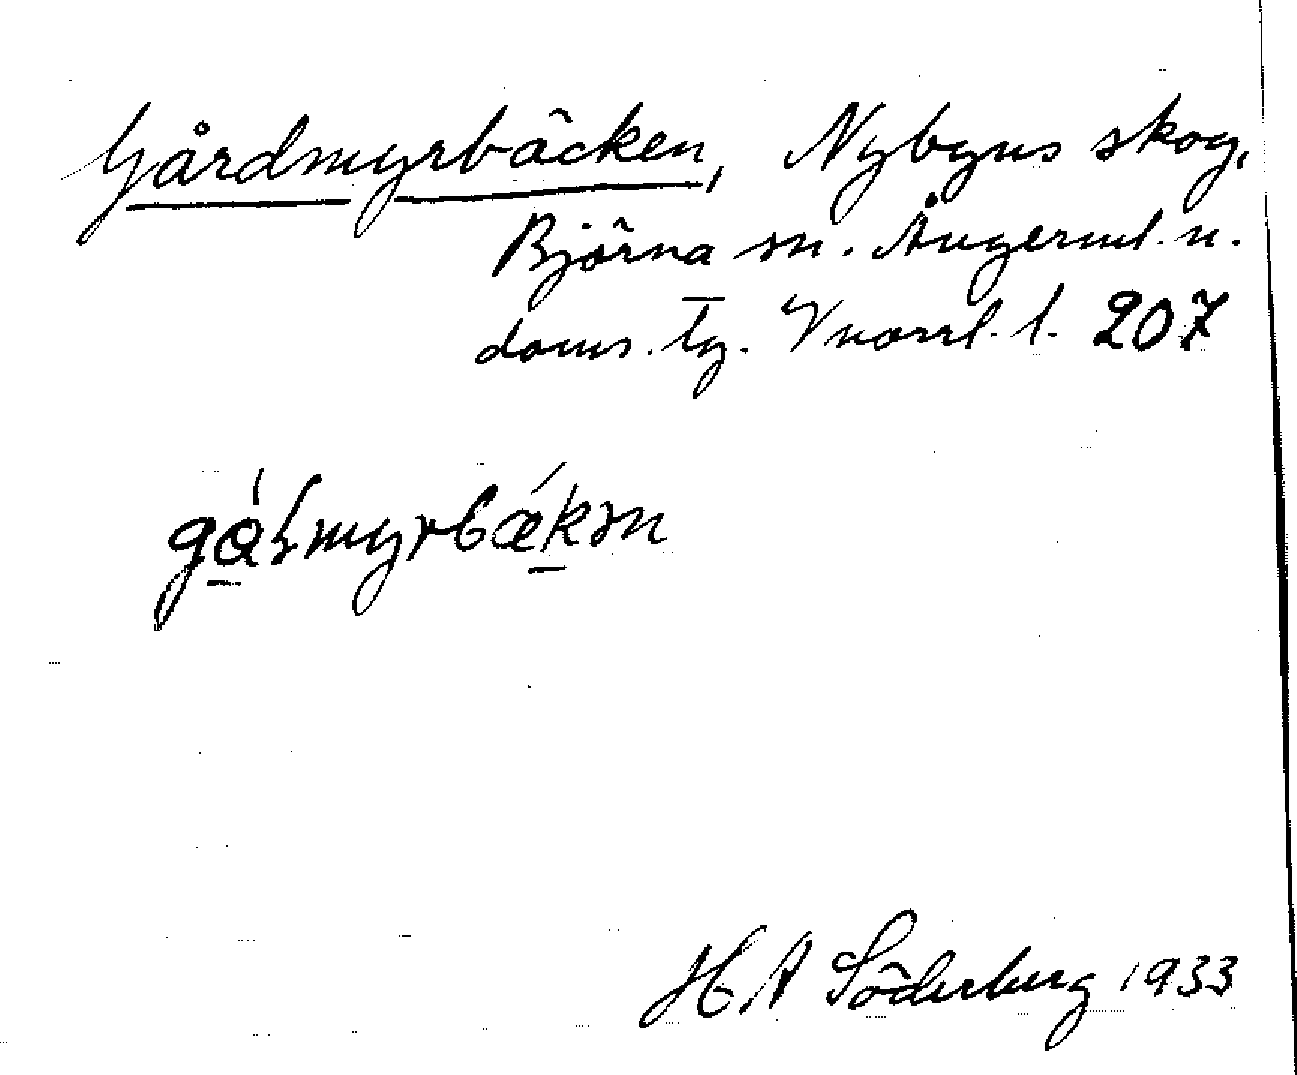 Gårdmyrbäcken, Nybyns skog,
Björna sn. Ångerml. n.
doms. tg. Vnorrl. l. 207
gɑ́ɽmyrbǽkən
H A Söderberg 1933